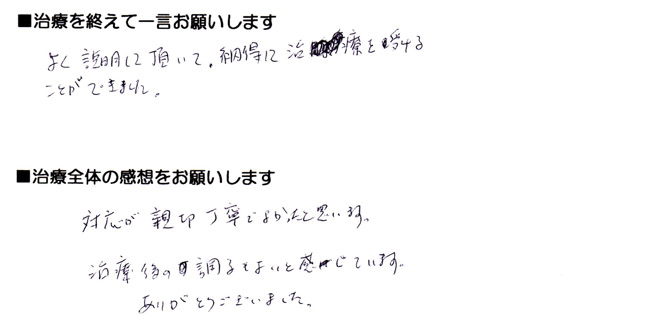 ■治療を終えて一言お願いします
よく説明して頂いて、納得に治療を受ける
ことができました。
■治療全体の感想をお願いします
対応が親切丁寧でよかったと思います。
治療後の調子もよいと感じています。
ありがとうございました。